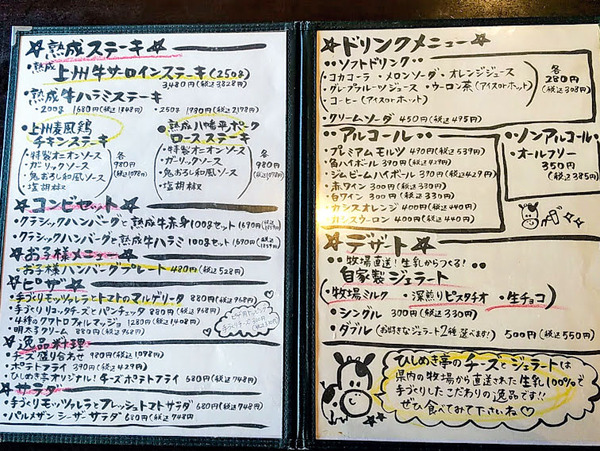 ☆熟成ステーキ☆
・熟成 上州牛サーロインステーキ(250g)
3,480円(税込3828円)
・熟成牛ハラミステーキ
・200g 1680円(税込1848円) ・250g 1980円(税込2178円)
・上州清風鶏
チキンステーキ
・特製オニオンソース
・ガーリックソース
・鬼おろし和風ソース
・塩胡椒
各
980円
(税込1078円)
・熟成八幡平ポーク
ロースステーキ
・特製オニオンソース
・ガーリックソース
・鬼おろし和風ソース
・塩胡椒
各
980円
(税込1078円)
☆コンビセット☆
・クラシックハンバーグと熟成牛赤身100gセット 1690円(税込1859円)
・クラシックハンバーグと熟成牛ハラミ100gセット 1690円(税込1859円)
☆お子様メニュー☆
・お子様ハンバーグプレート 480円(税込528円)
☆ピザ☆
・手づくりモッツァレラとトマトのマルゲリータ 880円(税込968円)
・手づくりリコッタチーズとパンチェッタ 880円(税込968円)
・4種のクワトロフォルマッジョ 1280円(税込1408円)
・明太子クリーム 880円(税込968円)
☆逸品料理☆
・チーズ盛り合わせ 980円(税込1078円)
・ポテトフライ 390円(税込429円)
・ひしめき亭オリジナル!チーズポテトフライ 680円(税込748円)
☆サラダ☆
・手づくりモッツァレラとフレッシュトマトサラダ 680円(税込748円)
・パルメザンシーザーサラダ 680円(税込748円)
☆ドリンクメニュー☆
・ソフトドリンク・
・コカコーラ ・メロンソーダ ・オレンジジュース
・グレープフルーツジュース ・ウーロン茶(アイスorホット)
・コーヒー(アイスorホット)
各
280円
(税込308円)
・クリームソーダ 450円(税込495円)
・アルコール・
・プレミアムモルツ 490円(税込539円)
・角ハイボール 390円(税込429円)
・ジムビームハイボール 390円(税込429円)
・赤ワイン 300円(税込330円)
・白ワイン 300円(税込330円)
・カシスオレンジ 400円(税込440円)
・カシスウーロン 400円(税込440円)
・ノンアルコール・
・オールフリー
350円
(税込385円)
☆デザート☆
・牧場直送!生乳からつくる!
自家製ジェラート
・牧場ミルク ・深煎りピスタチオ ・生チョコ
・シングル 300円(税込330円)
・ダブル(お好きなジェラート2種選べます!) 500円(税込550円)
ひしめき亭のチーズとジェラートは
県内の牧場から直送された生乳100%で
手づくりしたこだわりの逸品です!!
ぜひ食べてみて下さいね♡